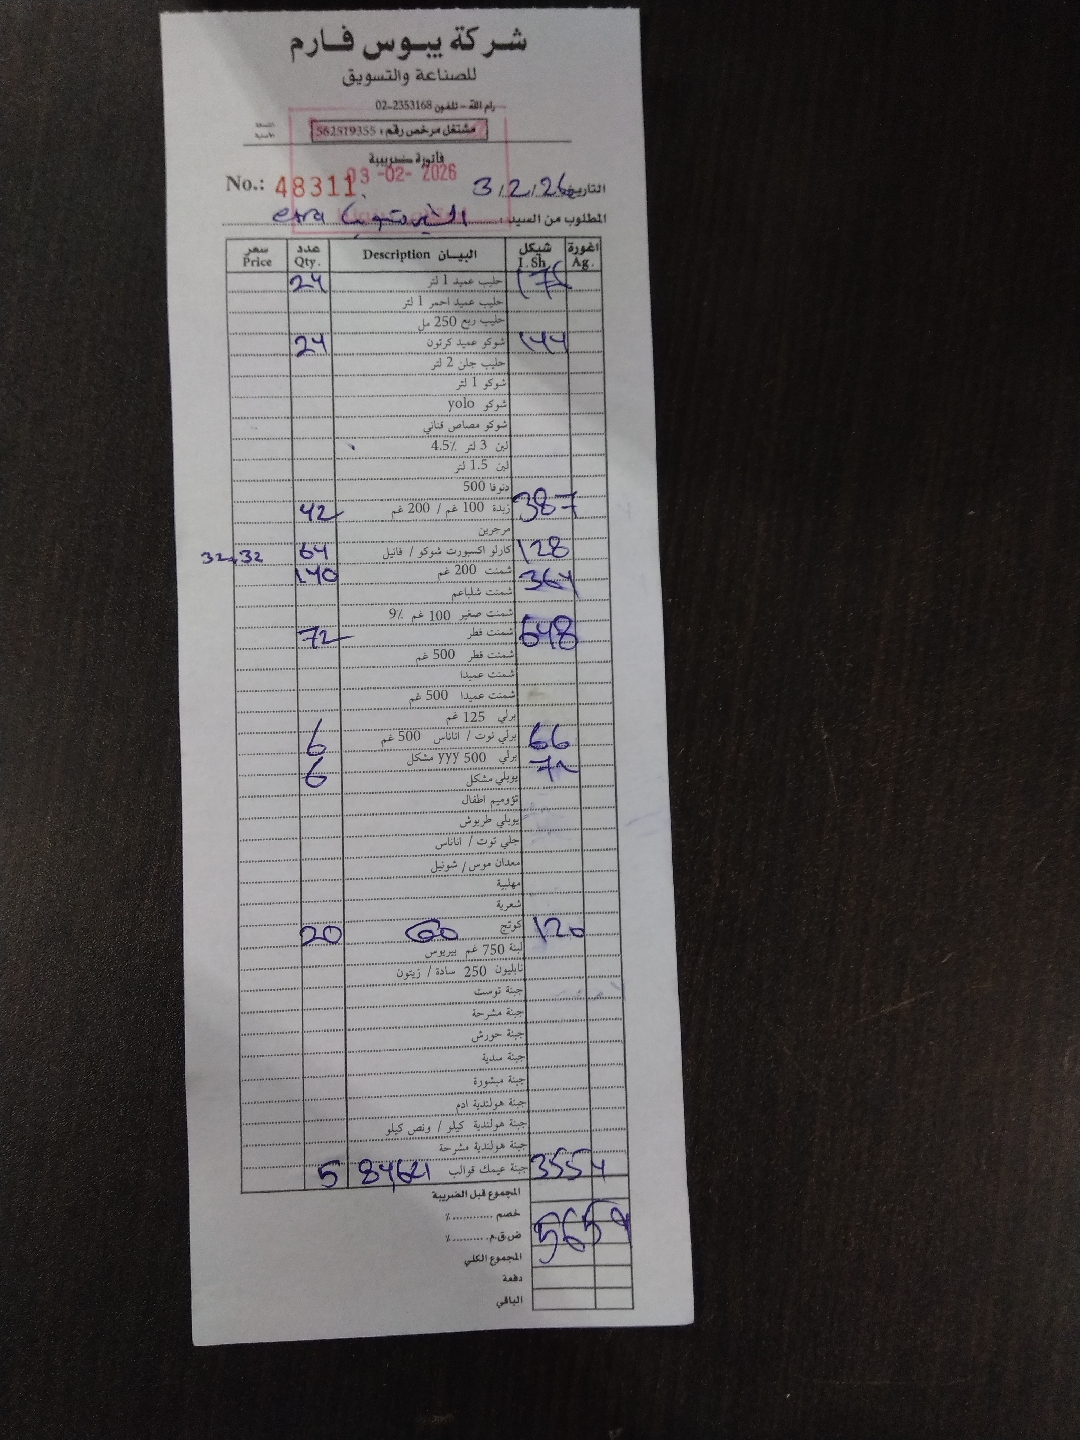 شركة يبوس فارم
للصناعة والتسويق
رام الله - تلفون 2353168-02
مشتغل مرخص رقم: 562519355
فاتورة ضريبية
No.: 48311 03-02-2026 التاريخ 3/2/26
المطلوب من السيد: extra
سعر Price عدد Qty. البيــان Description شيكل I. Sh اغورة Ag.
24 حليب عميد 1 لتر
حليب عميد احمر 1 لتر
حليب ربع 250 مل
24 شوكو عميد كرتون 144
حليب جلن 2 لتر
شوكو 1 لتر
شوكو yolo
شوكو مصاص قناني
لبن 3 لتر 4.5٪
لبن 1.5 لتر
دنوفا 500
42 زبدة 100 غم / 200 غم 387
مرجرين
32,32 64 كارلو اكسبورت شوكو / فانيل 128
140 شمنت 200 غم 364
شمنت شلباعم
شمنت صغير 100 غم 9٪
72 شمنت قطر 648
شمنت قطر 500 غم
شمنت عميدا
شمنت عميدا 500 غم
برلي 125 غم
6 برلي توت / اناناس 500 غم 66
برلي 500 yyy مشكل
6 يوبلي مشكل 72
تؤوميم اطفال
يوبلي طربوش
جلي توت / اناناس
معدان موس / شونيل
مهلبية
شعرية
20 كوتج 120
لبنة 750 غم بيريوس
نابليون 250 سادة / زيتون
جبنة توست
جبنة مشرحة
جبنة حورش
جبنة سدية
جبنة مبشورة
جبنة هولندية ادم
جبنة هولندية كيلو / ونص كيلو
جبنة هولندية مشرحة
5 84,621 جبنة عيمك قوالب 3554
المجموع قبل الضريبة
خصم ............٪
ض.ق.م...........٪ 5659
المجموع الكلي
دفعة
الباقي